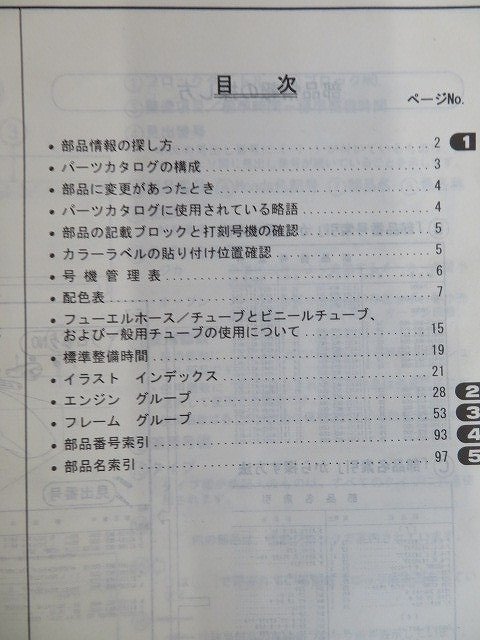 目 次
ページNo.
• 部品情報の探し方 2 1
• パーツカタログの構成 3
• 部品に変更があったとき 4
• パーツカタログに使用されている略語 4
• 部品の記載ブロックと打刻号機の確認 5
• カラーラベルの貼り付け位置確認 5
• 号機管理表 6
• 配色表 7
• フューエルホース／チューブとビニールチューブ、
および一般用チューブの使用について 15
• 標準整備時間 19
• イラスト インデックス 21
• エンジン グループ 28 2
• フレーム グループ 53 3
• 部品番号索引 93 4
• 部品名索引 97 5